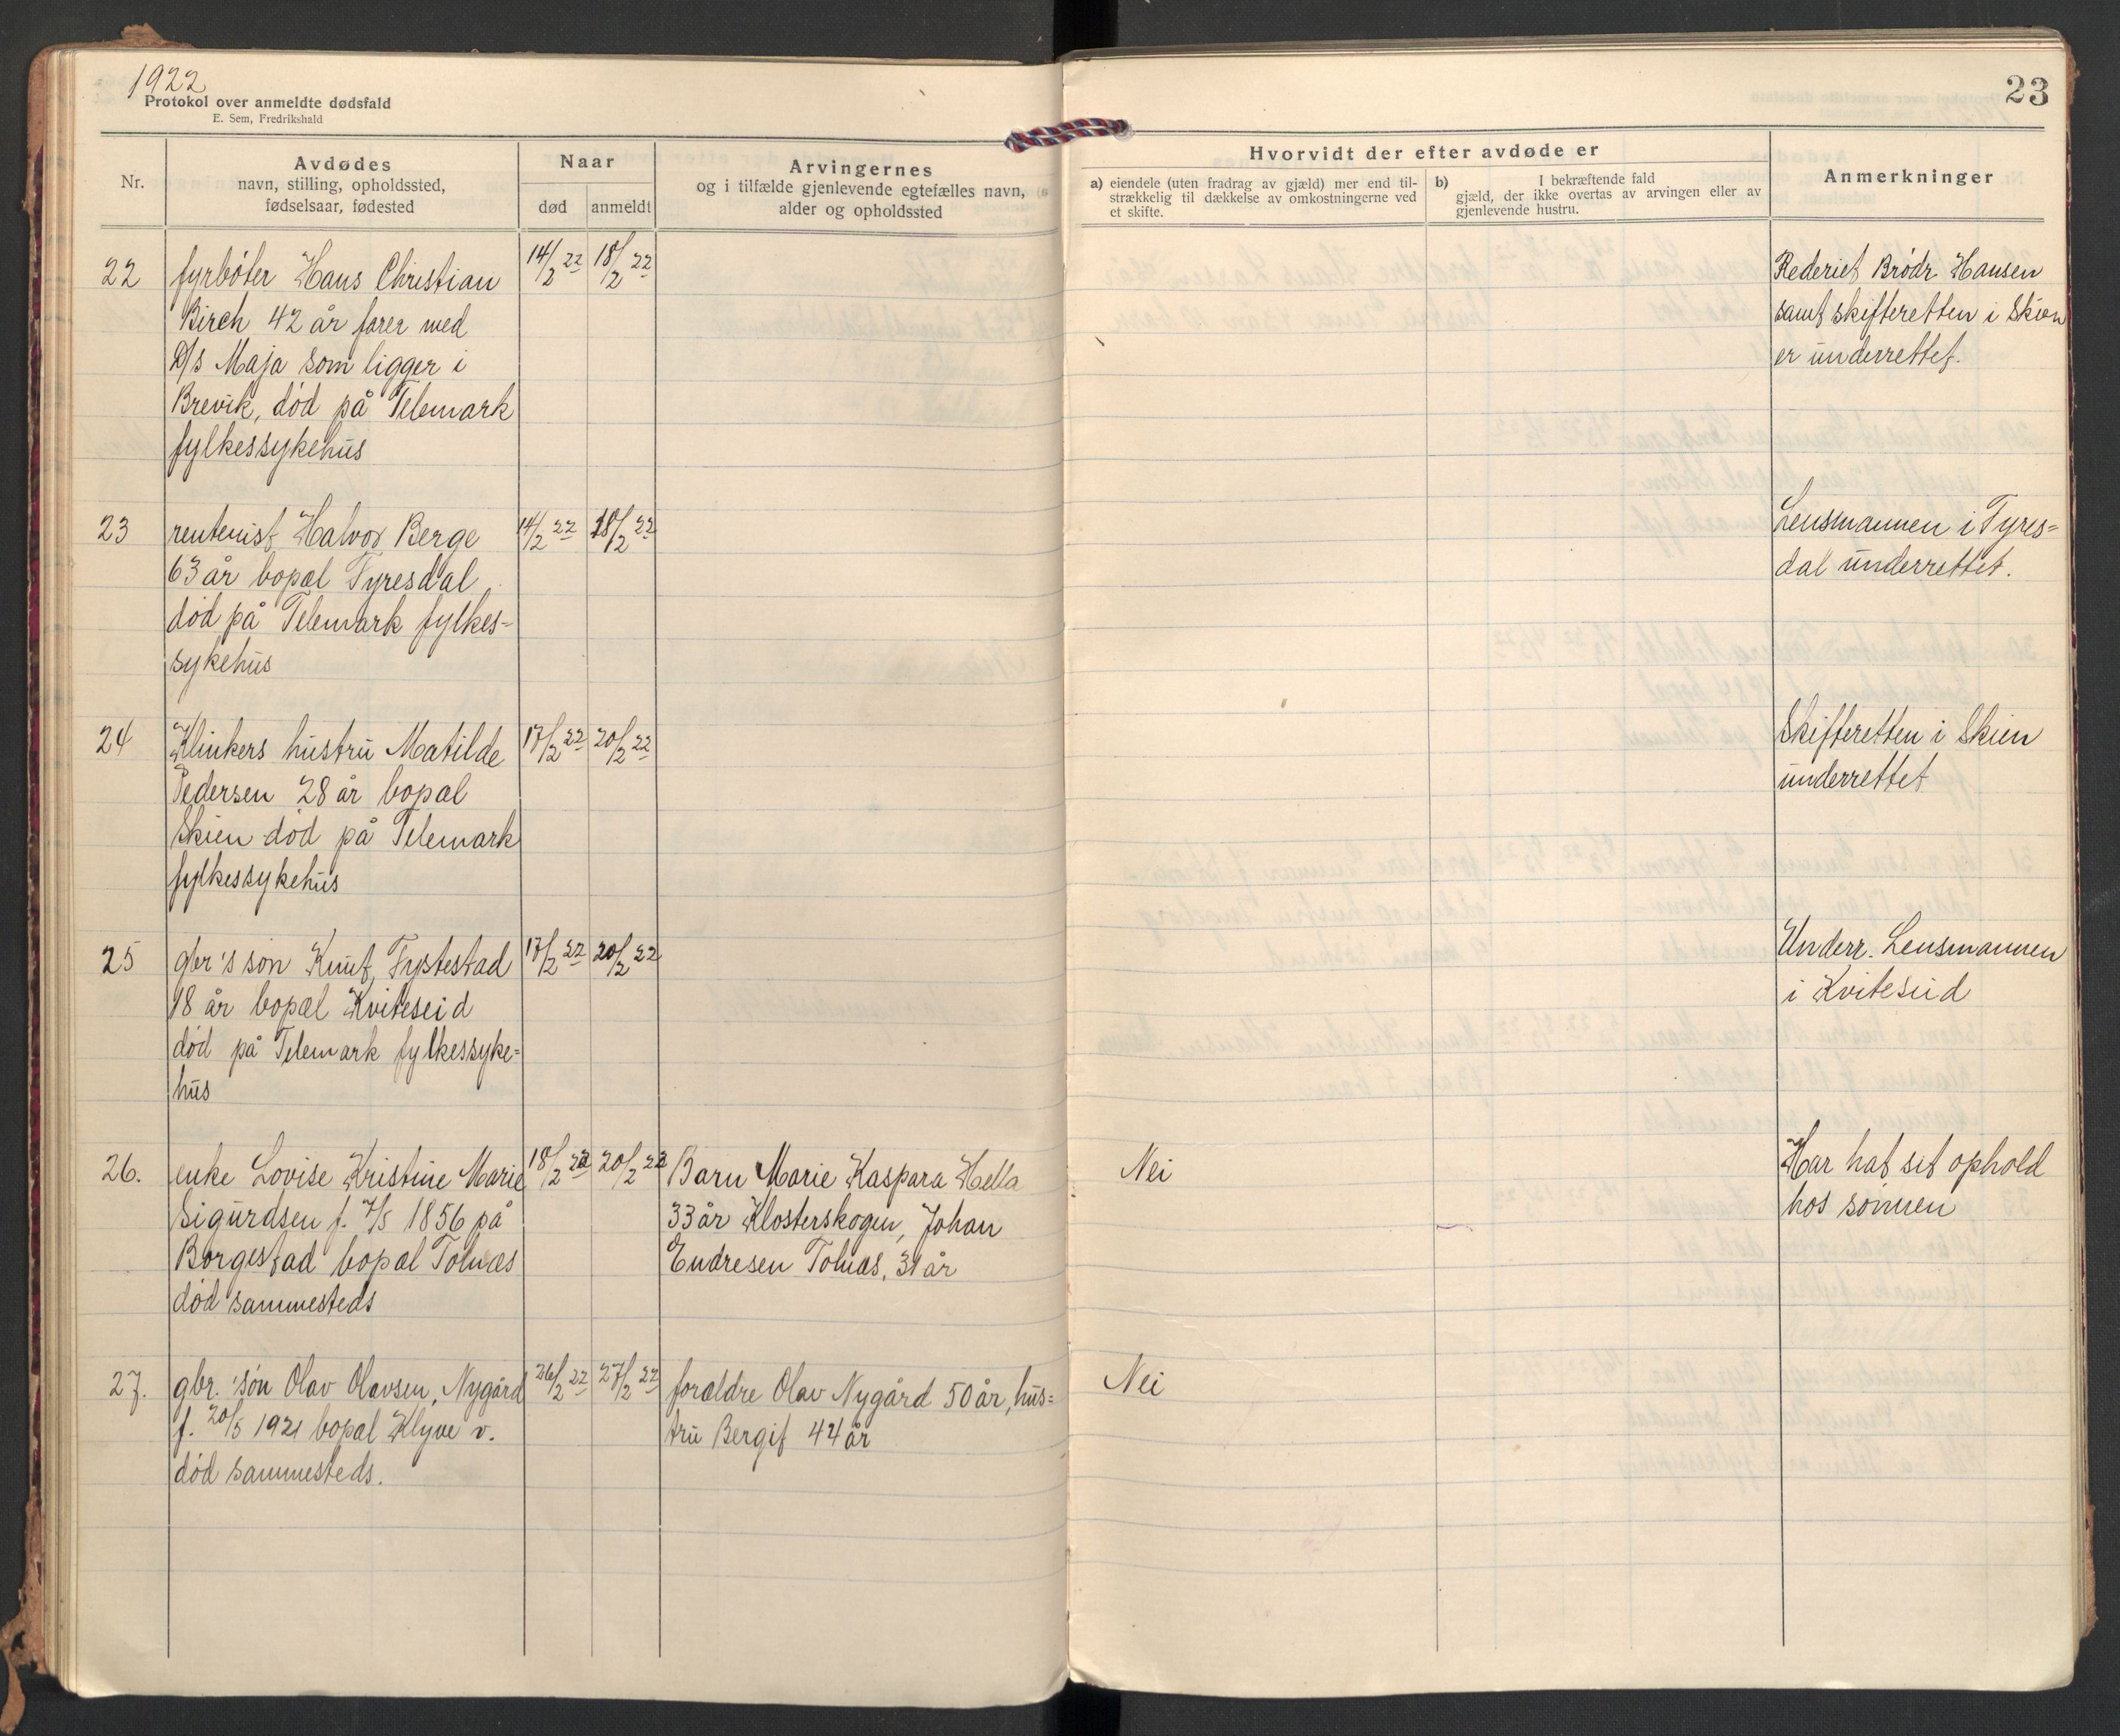 1922
Protokol over anmeldte dødsfald
E. Sem, Fredrikshald
23
Nr.
Avdødes
navn, stilling, opholdssted,
fødselsaar, fødested
Naar
død
anmeldt
Arvingernes
og i tilfælde gjenlevende egtefælles navn,
alder og opholdssted
Hvorvidt der efter avdøde er
a) eiendele (uten fradrag av gjæld) mer end til-
strækkelig til dækkelse av omkostningerne ved
et skifte.
b) I bekræftende fald
gjæld, der ikke overtas av arvingen eller av
gjenlevende hustru.
Anmerkninger
22
fyrbøter Hans Christian
Birch 42 år farer med
D/s Maja som ligger i
Brevik, død på Telemark
fylkessykehus
14/2 22
18/2 22
Rederiet Brødr. Hansen
samt skifteretten i Skien
er underrettet.
23
rentenist Halvor Berge
63 år bopæl Tyresdal
død på Telemark fylkes=
sykehus
14/2 22
18/2 22
Lensmannen i Tyres=
dal underrettet.
24
Klinkers hustru Matilde
Pedersen 28 år bopæl
Skien død på Telemark
fylkessykehus
17/2 22
20/2 22
Skifteretten i Skien
underrettet
25
gbr's søn Knut
18 år bopæl Kviteseid
død på Telemark fylkessyke=
hus
17/2 22
20/2 22
Underr. Lensmannen
i Kviteseid
26.
enke Lovise Kristine Marie
Sigurdsen f. 7/5 1856 på
Borgestad bopæl Tolnæs
død sammesteds
18/2 22
20/2 22
Barn Marie Kaspara Hella
33 år Klosterskogen, Johan
Endresen Tolnæs, 31 år
Nei
Har hat sit ophold
hos sønnen
27.
gbr. 'søn Olav Olavsen, Nygård
f. 20/5 1921 bopæl Klyve v.
død sammesteds.
26/2 22
27/2 22
forældre Olav Nygård 50 år, hus=
tru Bergit 44 år
Nei